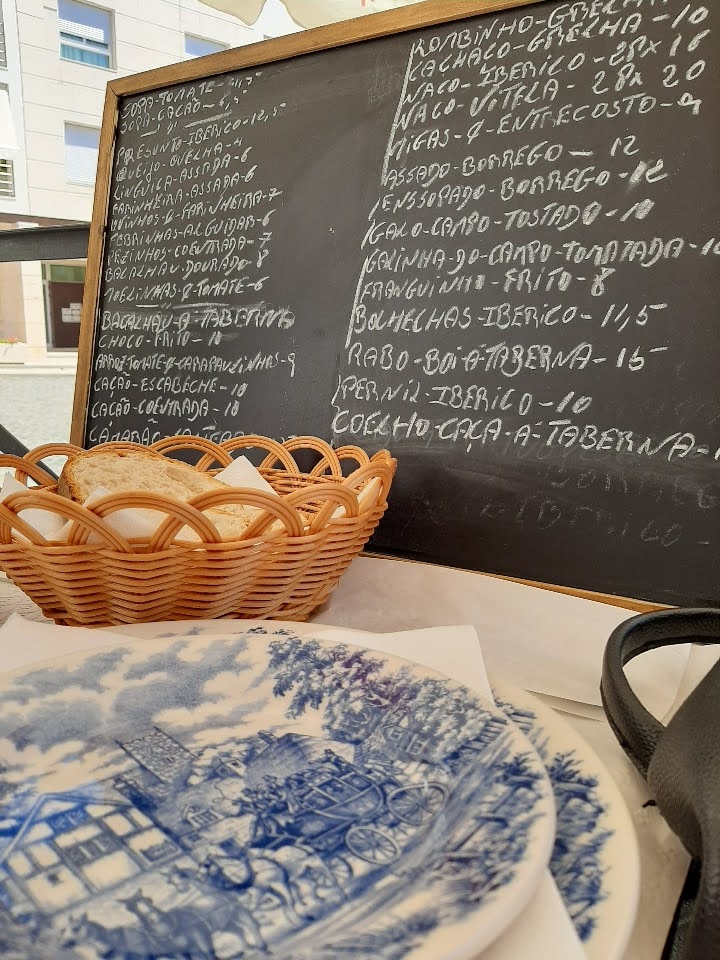 SOPA-TOMATE-4,75
SOPA-CAÇÃO-6,5
PRESUNTO-IBERICO-12,5
QUEIJO-OVELHA-4
LINGUIÇA-ASSADA-6
FARINHEIRA-ASSADA-6
OVINHOS-C/FARINHEIRA-7
FEBRINHAS-ALGUIDAR-6
PEZINHOS-COENTRADA-7
BACALHAU-DOURADO-8
MOELINHAS-C/TOMATE-6
BACALHAU-A-TABERNA
CHOCO-FRITO-10
ARROZ-TOMATE-C/CARAPAUZINHOS-9
CAÇÃO-ESCABECHE-10
CAÇÃO-COENTRADA-10
CAMARÃO
ROMBINHO-GRELHA
CACHAÇO-GRELHA-10
NACO-IBERICO-2PX 16
NACO-VITELA-2PX 20
MIGAS-C/ENTRECOSTO-9
ASSADO-BORREGO-12
ENSSOPADO-BORREGO-12
GALO-CAMPO-TOSTADO-10
GALINHA-DO-CAMPO-TOMATADA-10
FRANGUINHO-FRITO-8
BOLHECHAS-IBERICO-11,5
RABO-BOI-A-TABERNA-15
PERNIL-IBERICO-10
COELHO-CAÇA-A-TABERNA-